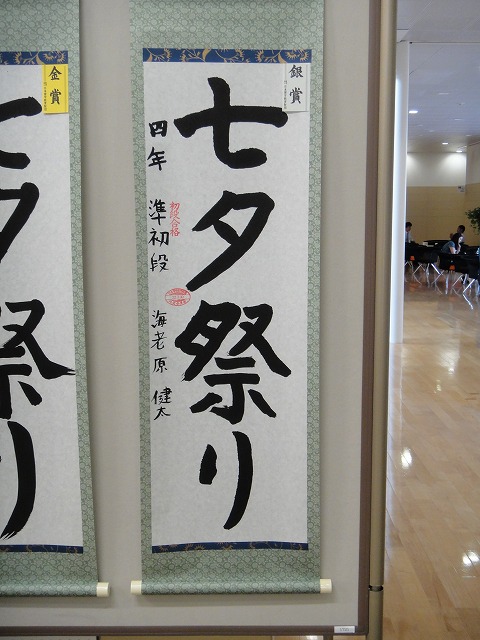 銀賞
七夕祭り
四年 準初段 海老原 健太
初段合格
金賞
七夕祭り